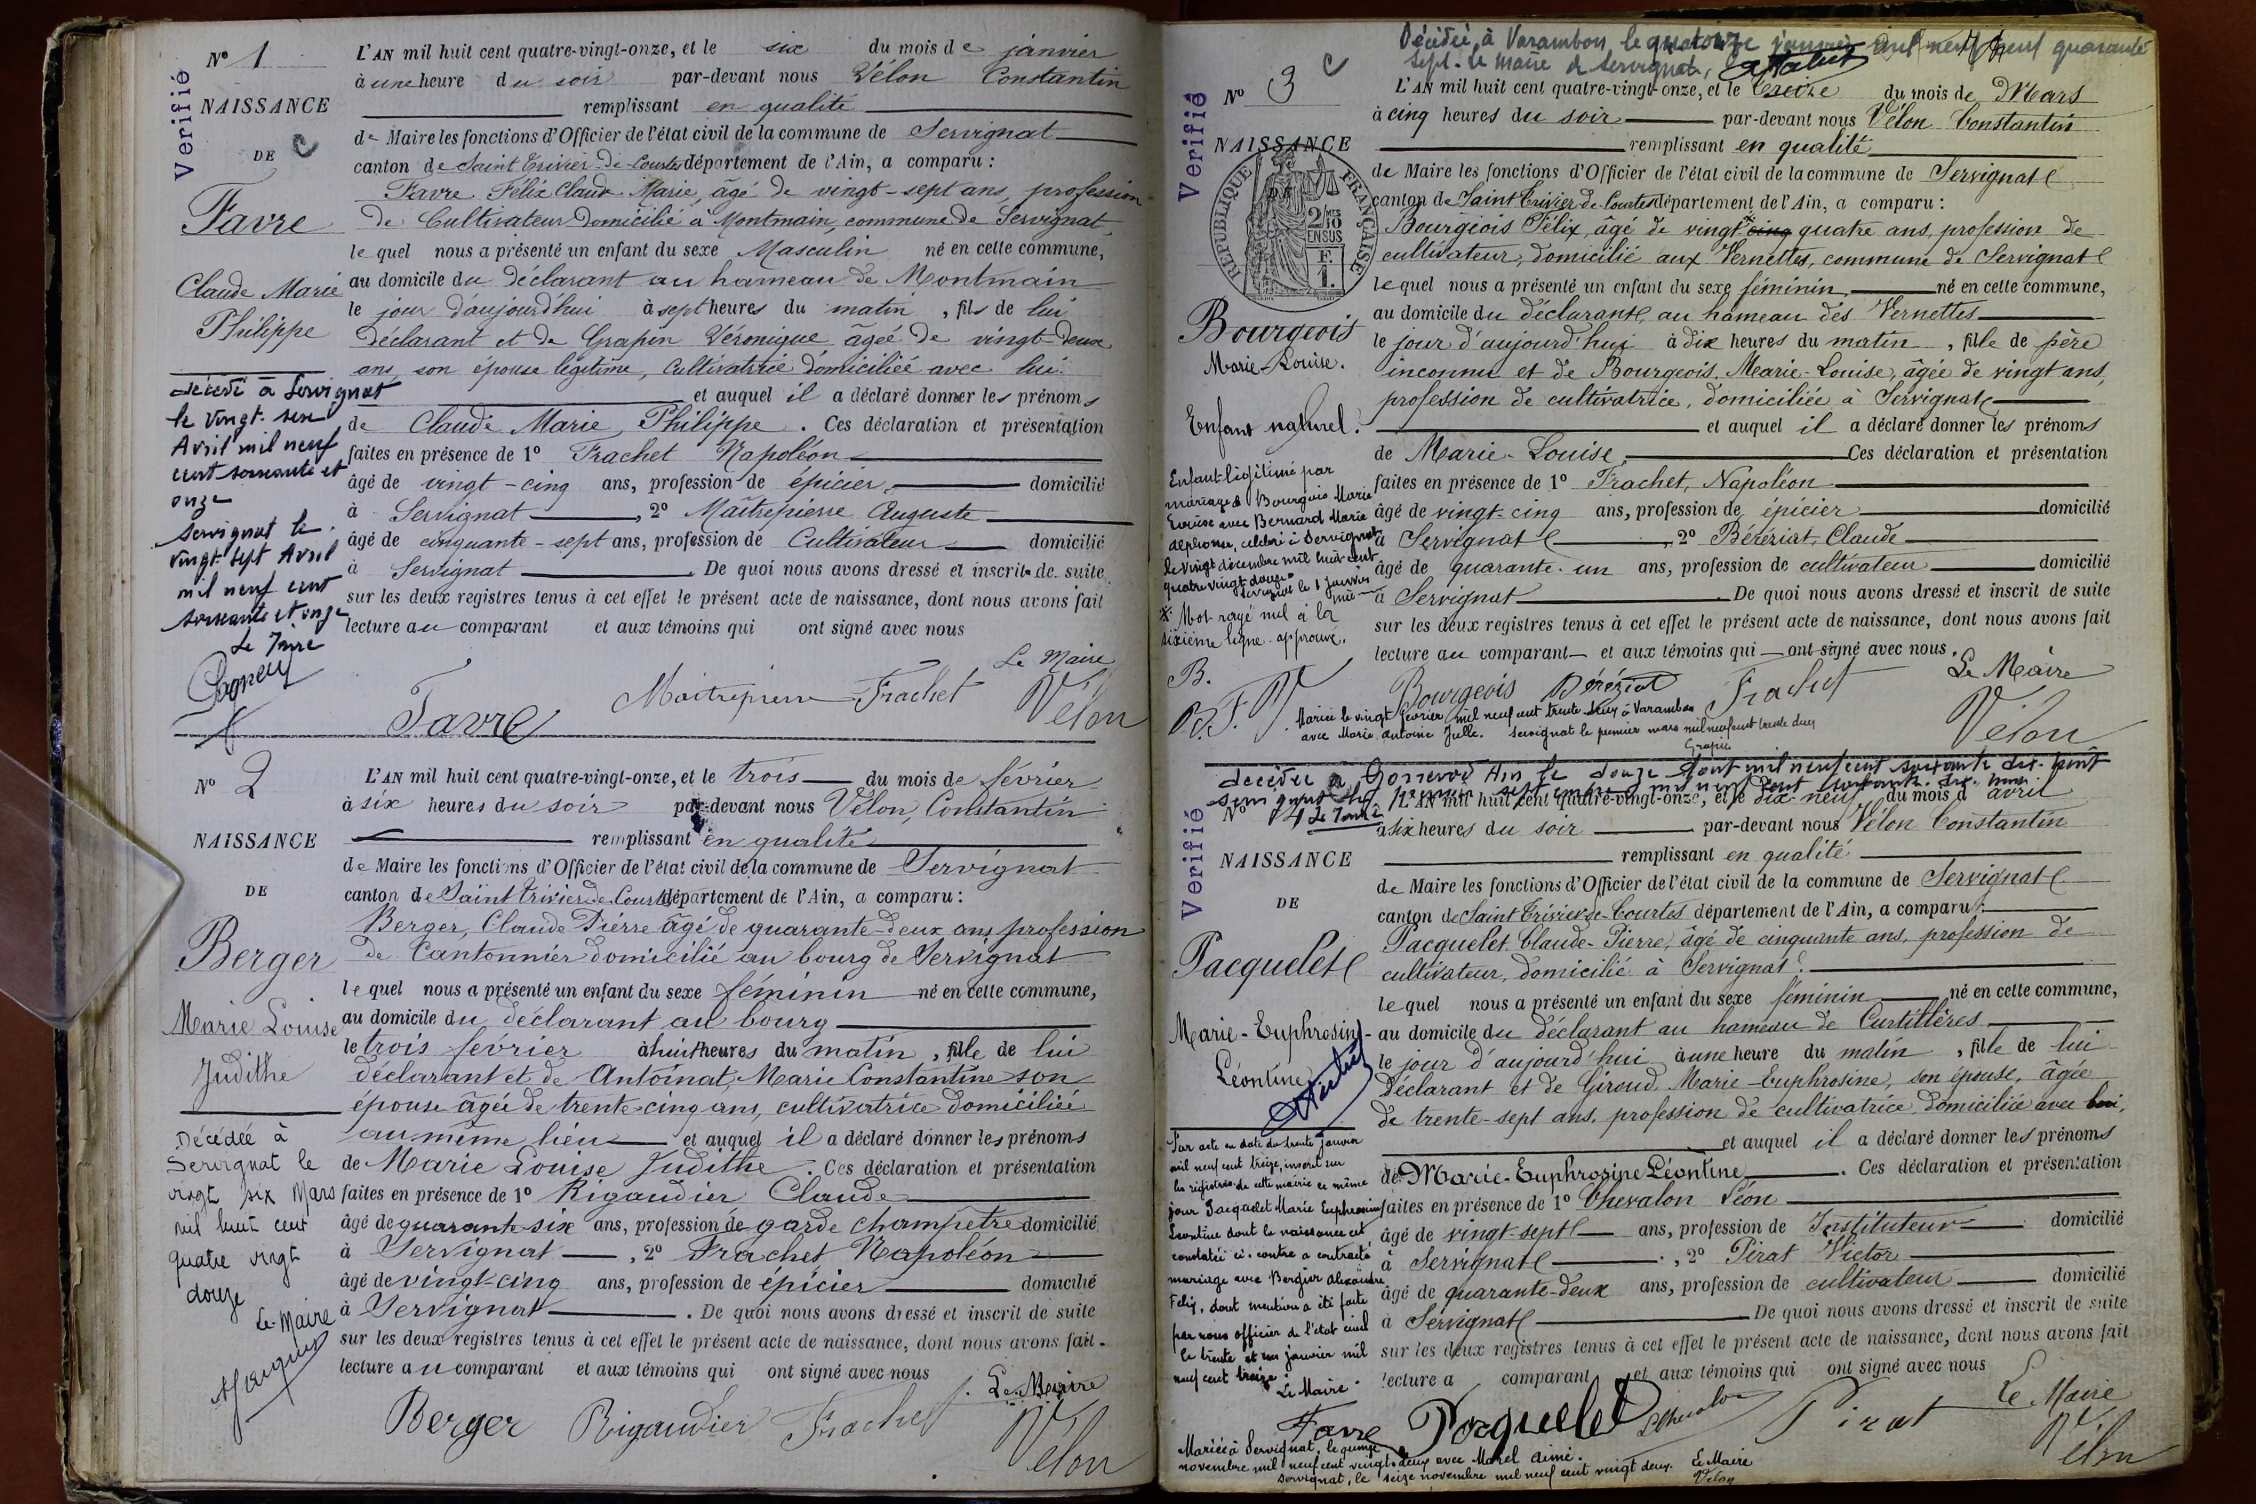 Nº 1
Verifié
NAISSANCE
DE
C
Favre
Claude Marie
Philippe
décédé à Servignat
le vingt-six
Avril mil neuf
cent soixante et
onze
Servignat le
vingt sept Avril
mil neuf cent
soixante et onze
Le Maire
L'AN mil huit cent quatre-vingt-onze, et le six du mois de janvier
à une heure du soir par-devant nous Vélon Constantin
remplissant en qualité
de Maire les fonctions d'Officier de l'état civil de la commune de Servignat
canton de Saint Trivier-de-Courtes département de l'Ain, a comparu :
Favre Félix Claude Marie, âgé de vingt-sept ans, profession
de Cultivateur domicilié à Montmain, commune de Servignat,
lequel nous a présenté un enfant du sexe Masculin né en cette commune,
au domicile du déclarant au hameau de Montmain
le jour d'aujourd'hui à sept heures du matin, fils de lui
déclarant et de Grapin Véronique âgée de vingt-deux
ans, son épouse légitime, Cultivatrice domiciliée avec lui.
et auquel il a déclaré donner les prénoms
de Claude Marie Philippe. Ces déclaration et présentation
faites en présence de 1º Frachet Napoléon
âgé de vingt-cinq ans, profession de épicier, domicilié
à Servignat, 2º Maîtrepierre Auguste
âgé de cinquante-sept ans, profession de Cultivateur domicilié
à Servignat. De quoi nous avons dressé et inscrit de suite
sur les deux registres tenus à cet effet le présent acte de naissance, dont nous avons fait
lecture au comparant et aux témoins qui ont signé avec nous
Le Maire
Favre Maitrepierre Frachet Vélon
Nº 2
NAISSANCE
DE
Berger
Marie Louise
Judithe
Décédée à
Servignat le
vingt six Mars
mil huit cent
quatre vingt
douze
Le Maire
L'AN mil huit cent quatre-vingt-onze, et le trois du mois de février
à six heures du soir par-devant nous Vélon, Constantin
remplissant en qualité
de Maire les fonctions d'Officier de l'état civil de la commune de Servignat
canton de Saint Trivier de Courtes département de l'Ain, a comparu :
Berger, Claude Pierre âgé de quarante-deux ans profession
de Cantonnier domicilié au bourg de Servignat
lequel nous a présenté un enfant du sexe féminin né en cette commune,
au domicile du déclarant au bourg
le trois février à huit heures du matin, fille de lui
déclarant et de Antoinat, Marie Constantine son
épouse âgée de trente-cinq ans, cultivatrice domiciliée
au même lieu et auquel il a déclaré donner les prénoms
de Marie Louise Judithe. Ces déclaration et présentation
faites en présence de 1º Rigaudier Claude
âgé de quarante-six ans, profession de garde champêtre domicilié
à Servignat, 2º Frachet Napoléon
âgé de vingt-cinq ans, profession de épicier domicilié
à Servignat. De quoi nous avons dressé et inscrit de suite
sur les deux registres tenus à cet effet le présent acte de naissance, dont nous avons fait
lecture au comparant et aux témoins qui ont signé avec nous
Le Maire
Berger Rigaudier Frachet Vélon
Décédée à Varambon, le quatorze janvier mil neuf cent quarante
sept. Le Maire de Servignat,
Nº 3
C
Verifié
NAISSANCE
DE
RÉPUBLIQUE FRANÇAISE
2/10
EN SUS
F.
1.
Bourgeois
Marie-Louise.
Enfant naturel.
Enfant légitimé par
mariage de Bourgeois Marie
Louise avec Bernard Marie
Alphonse, célébré à Servignat
le vingt décembre mil huit cent
quatre vingt douze
Servignat le 1 janvier
Mot rayé nul à la
sixième ligne approuvé.
B.
B. F. V.
L'AN mil huit cent quatre-vingt-onze, et le treize du mois de Mars
à cinq heures du soir par-devant nous Vélon Constantin
remplissant en qualité
de Maire les fonctions d'Officier de l'état civil de la commune de Servignat
canton de Saint Trivier-de-Courtes département de l'Ain, a comparu :
Bourgeois Félix, âgé de vingt-cinq quatre ans, profession de
cultivateur, domicilié aux Vernettes, commune de Servignat
lequel nous a présenté un enfant du sexe féminin, né en cette commune,
au domicile du déclarant, au hameau des Vernettes
le jour d'aujourd'hui à dix heures du matin, fille de père
inconnu et de Bourgeois Marie-Louise, âgée de vingt ans,
profession de cultivatrice, domiciliée à Servignat
et auquel il a déclaré donner les prénoms
de Marie-Louise, Ces déclaration et présentation
faites en présence de 1º Frachet, Napoléon
âgé de vingt-cinq ans, profession de épicier domicilié
à Servignat, 2º Béréziat, Claude
âgé de quarante-un ans, profession de cultivateur domicilié
à Servignat. De quoi nous avons dressé et inscrit de suite
sur les deux registres tenus à cet effet le présent acte de naissance, dont nous avons fait
lecture au comparant et aux témoins qui ont signé avec nous.
Le Maire
Bourgeois Béréziat Frachet Vélon
Mariée le vingt février mil neuf cent trente-deux à Varambon
avec Marie Antoine Jullé. Servignat le premier mars mil neuf cent trente deux
Grapin
décédée à Gorrevod Ain le douze Août mil neuf cent soixante dix-huit
Servignat le premier septembre mil neuf cent soixante-dix-huit
Le Maire
Nº 4
Verifié
NAISSANCE
DE
Pacquelet
Marie-Euphrosine-
Léontine
Par acte en date du trente janvier
mil neuf cent treize, inscrit sur
les registres de cette mairie ce même
jour Pacquelet Marie Euphrosine
Léontine dont la naissance est
constatée ci-contre a contracté
mariage avec Bergier Alexandre
Félix, dont mention a été faite
par nous officier de l'état civil
le trente et un janvier mil
neuf cent treize.
Le Maire
Favre
L'AN mil huit cent quatre-vingt-onze, et le dix-neuf du mois d'avril
à six heures du soir par-devant nous Vélon Constantin
remplissant en qualité
de Maire les fonctions d'Officier de l'état civil de la commune de Servignat
canton de Saint Trivier-de-Courtes département de l'Ain, a comparu :
Pacquelet Claude-Pierre, âgé de cinquante ans, profession de
cultivateur, domicilié à Servignat
lequel nous a présenté un enfant du sexe féminin né en cette commune,
au domicile du déclarant au hameau de Curtillères
le jour d'aujourd'hui à une heure du matin, fille de lui
déclarant et de Giroud Marie-Euphrosine, son épouse, âgée
de trente-sept ans, profession de cultivatrice domiciliée avec lui,
et auquel il a déclaré donner les prénoms
de Marie-Euphrosine Léontine. Ces déclaration et présentation
faites en présence de 1º Chevalon Léon
âgé de vingt-sept ans, profession de Instituteur domicilié
à Servignat, 2º Pirat Victor
âgé de quarante-deux ans, profession de cultivateur domicilié
à Servignat De quoi nous avons dressé et inscrit de suite
sur les deux registres tenus à cet effet le présent acte de naissance, dont nous avons fait
lecture a comparant et aux témoins qui ont signé avec nous
Le Maire
Pacquelet Chevalon Pirat Vélon
Mariée à Servignat, le quinze
novembre mil neuf cent vingt-deux avec Morel Aimé.
Servignat, le seize novembre mil neuf cent vingt deux. Le Maire
Velon